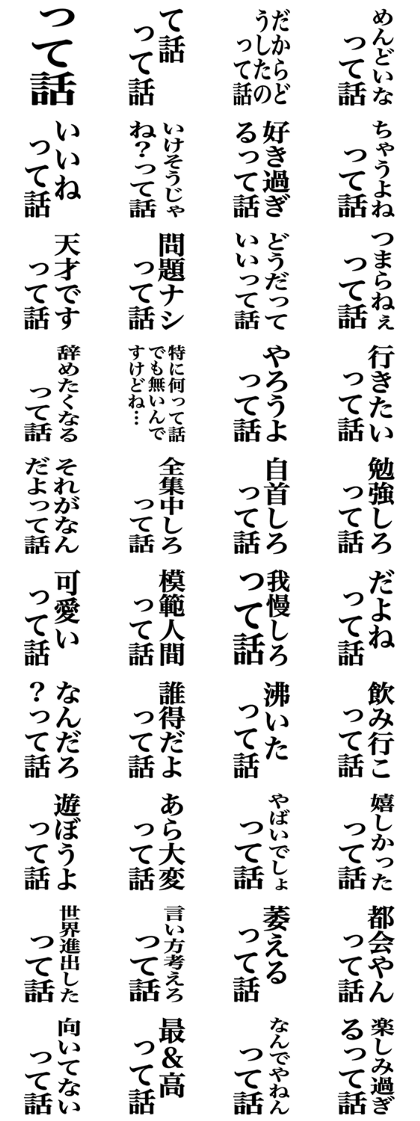 って
話
て話
って話
だからど
うしたの
って話
めんどいな
って話
いいね
って話
いけそうじゃ
ね？って話
好き過ぎ
るって話
ちゃうよね
って話
天才です
って話
問題ナシ
って話
どうだって
いいって話
つまらねぇ
って話
辞めたくなる
って話
特に何って話
でも無いんで
すけどね…
やろうよ
って話
行きたい
って話
それがなん
だよって話
全集中しろ
って話
自首しろ
って話
勉強しろ
って話
可愛い
って話
模範人間
って話
我慢しろ
って話
だよね
って話
なんだろ
？って話
誰得だよ
って話
沸いた
って話
飲み行こ
って話
遊ぼうよ
って話
あら大変
って話
やばいでしょ
って話
嬉しかった
って話
世界進出した
って話
言い方考えろ
って話
萎える
って話
都会やん
って話
向いてない
って話
最&高
って話
なんでやねん
って話
楽しみ過ぎ
るって話